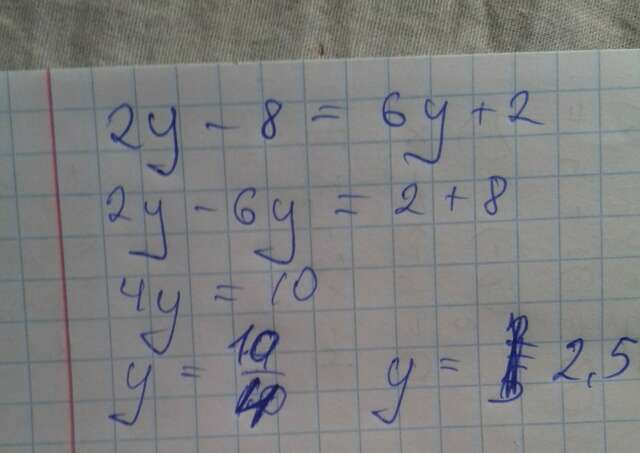 2y - 8 = 6y + 2
2y - 6y = 2 + 8
4y = 10
y = 10/4 y = 2,5